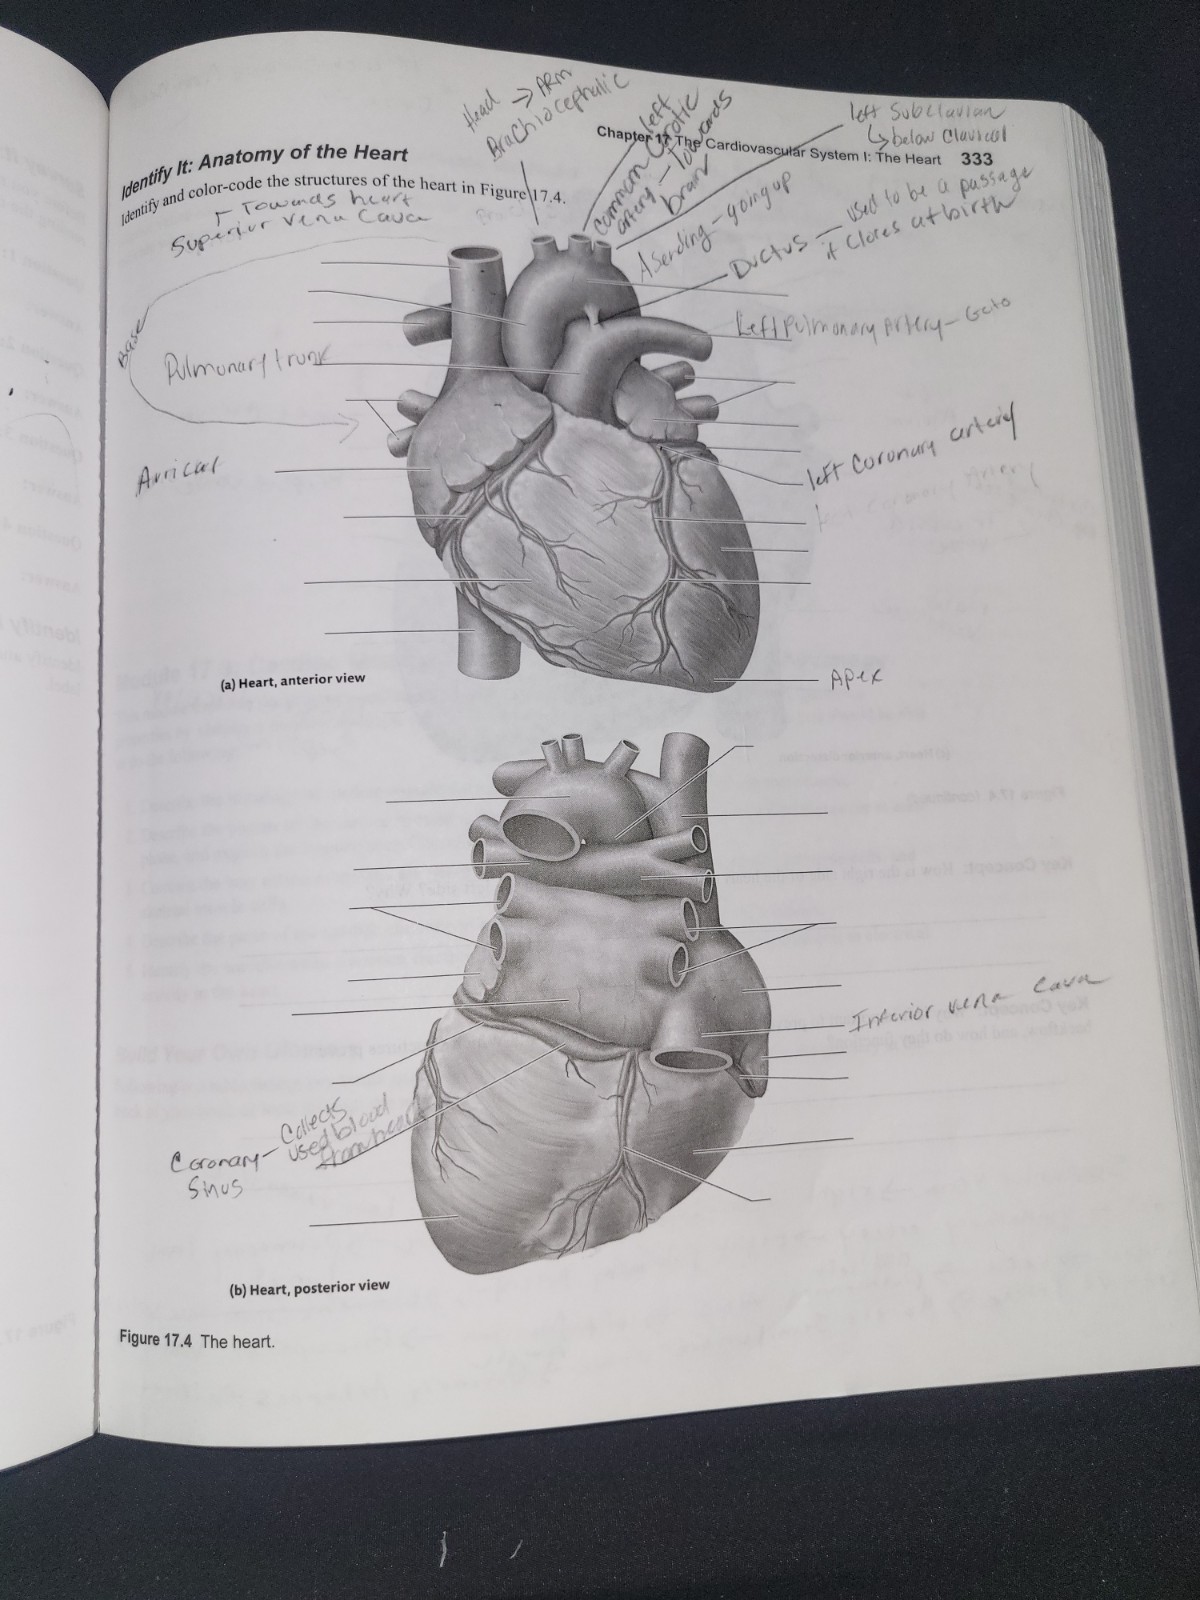 Head → ARM
Brachiocephalic
left
common Carotic
artery - towards
brain
left Subclavian
↳ below Clavical
Chapter 17 The Cardiovascular System I: The Heart 333
Identify It: Anatomy of the Heart
Identify and color-code the structures of the heart in Figure 17.4.
Towards heart
Superior Vena Cava
Asending - going up
Ductus - used to be a passage
it Closes at birth
Base
Left Pulmonary Artery - Goto
Pulmonary trunk
left Coronary artery
Aurical
Apex
(a) Heart, anterior view
Inferior vena Cava
Coronary - Collects
Sinus used blood
from heart
(b) Heart, posterior view
Figure 17.4 The heart.